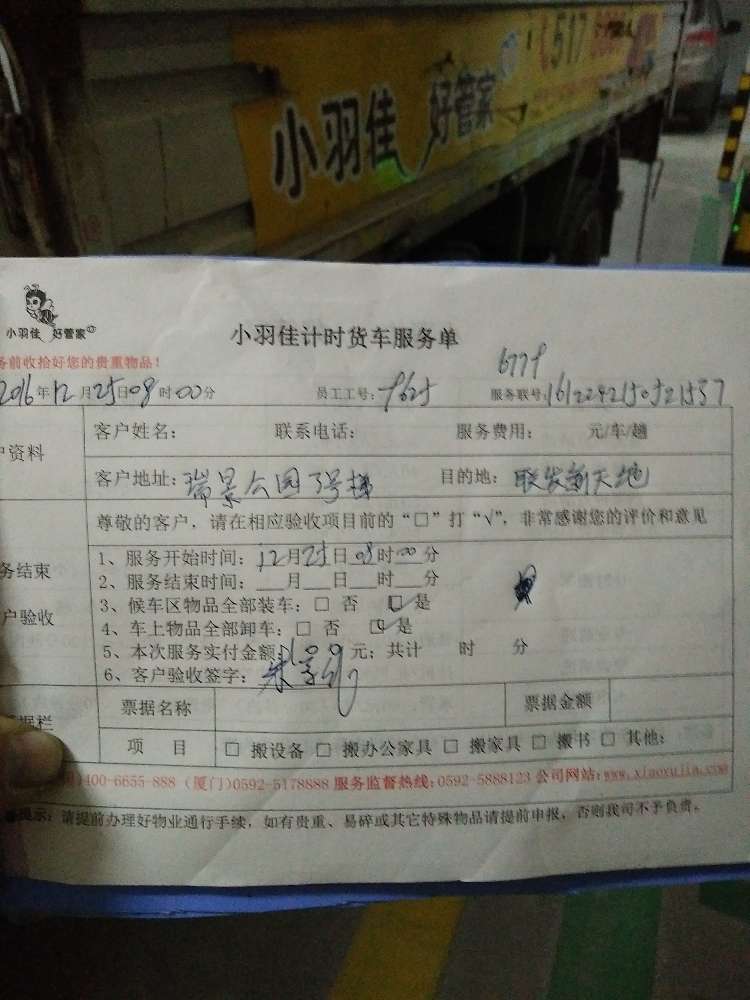 小羽佳 好管家 517
小羽佳 好管家
小羽佳计时货车服务单
务前收拾好您的贵重物品！
6779
2016年12月25日08时00分 员工工号：9625 服务联号：161224215521537
户资料
客户姓名： 联系电话： 服务费用： 元/车/趟
客户地址：瑞景公园3号梯 目的地：联发新天地
尊敬的客户，请在相应验收项目前的“□”打“√”，非常感谢您的评价和意见
务结束
户验收
1、服务开始时间：12月25日08时00分
2、服务结束时间：___月___日___时___分
3、候车区物品全部装车：□ 否 ☑是
4、车上物品全部卸车：□ 否 ☑是
5、本次服务实付金额：元；共计 时 分
6、客户验收签字：
据栏
票据名称 票据金额
项 目 □ 搬设备 □ 搬办公家具 □ 搬家具 □ 搬书 □ 其他：
)400-6655-888（厦门)0592-5178888 服务监督热线：0592-5888123 公司网站：www.xiaoyujia.com
提示：请提前办理好物业通行手续，如有贵重、易碎或其它特殊物品请提前申报，否则我司不予负责。